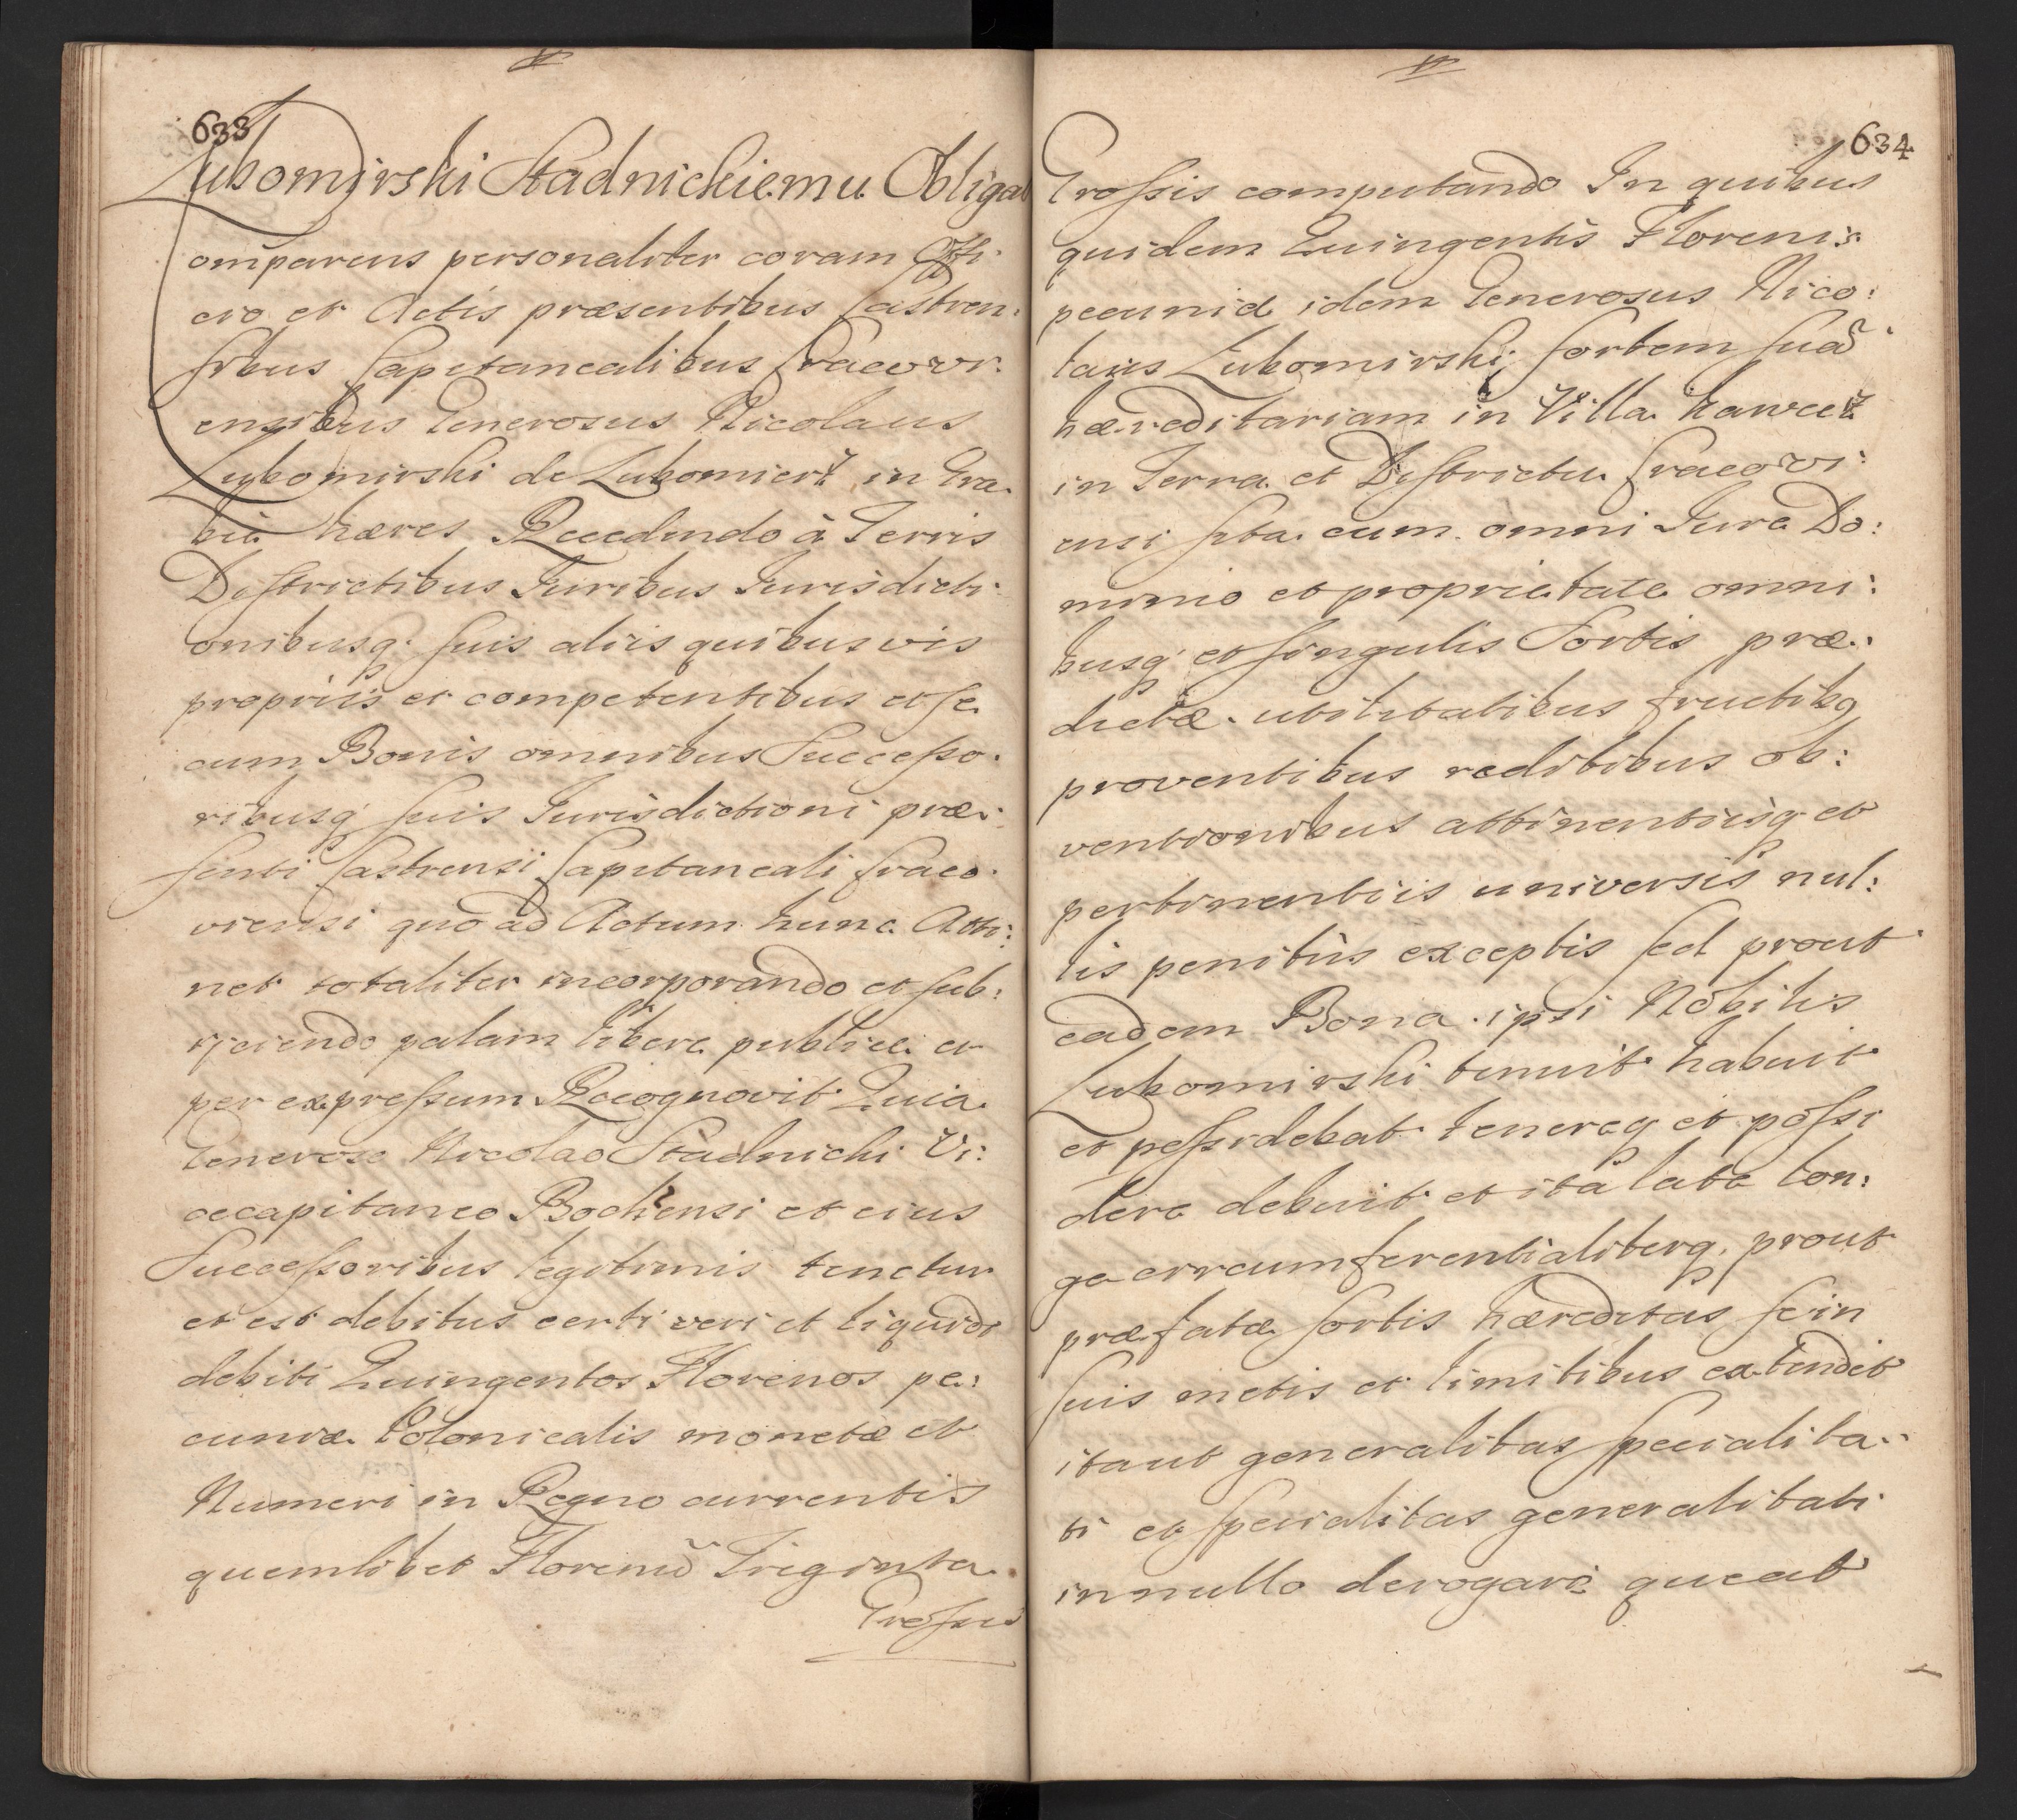 633
Lubomirski Stadnickiemu Obligat
Comparens personaliter coram Offi:
cio et Actis præsentibus Castren:
sibus Capitanealibus Cracovi:
ensibus Generosus Nicolaus
Lubomirski de Lubomierz in Gra:
bie hæres Recedendo à Terris
Districtibus Iuribus Iurisdicti:
onibusq suis aliis quibusvis
propriis et competentibus et se
cum Bonis omnibus Successo:
ribusq suis Iurisdictioni præ:
senti Castrensi Capitaneali Craco:
viensi quo ad Actum hunc Atti:
net totaliter incorporando et sub:
ijciendo palam libere publice et
per expressum Recognovit Quia
Generoso Nicolao Stadnicki Vi:
cecapitaneo Bochensi et eius
Successoribus legitimis tenetur
et est debitus certi veri et liquidi
debiti Quingentos Florenos pe:
cuniæ Polonicalis monetæ et
Numeri in Regno currentis
quemlibet Florenũ Triginta
Grossis
634
Grossis computando In quibus
quidem Quingentis Florenis
pecuniæ idem Generosus Nico:
laus Lubomirski sortem suã
hæreditariam in Villa
in Terra et Districtu Cracovi:
ensi sita cum omni Iure Do:
minio et proprietate omni:
busq et singulis Sortis præ:
dictæ utilitatibus fructibq
proventibus reditibus ob:
ventionibus attinentiisq et
pertinentiis universis nul:
lis penitùs exceptis sed prout
eadem Bona ipsi Nobilis
Lubomirski tenuit habuit
et possidebat tenereq et possi
dere debuit et ita late lon:
ge circumferentialiterq prout
præfatæ sortis hæreditas se in
suis metis et limitibus extendit
itaut generalitas specialita:
ti et specialitas generalitati
in nullo derogare queat